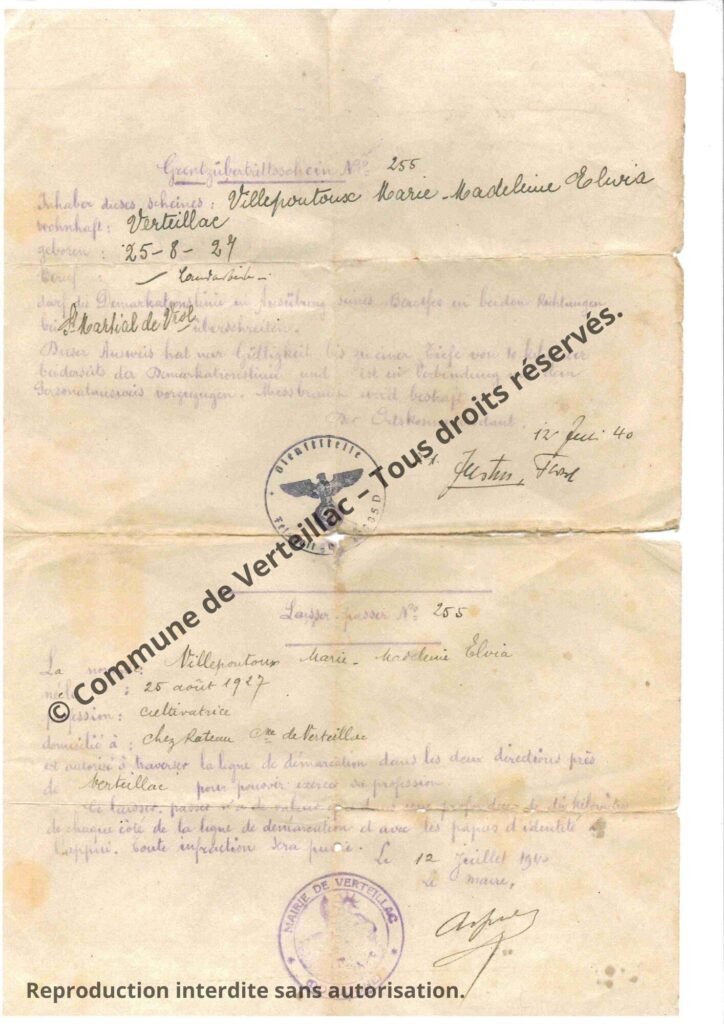 Grentzübertrittsschein No 255
Inhaber dieses scheines: Villepontoux Marie-Madeleine Elvia
wohnhaft: Verteillac
geboren: 25-8-27
Beruf :
darf die Demarkationslinie in Ausübung seines Berufes en beiden Richtungen
bei St Martial de Viol überschreiten.
Dieser Ausweis hat nur Gültigkeit bis zu einer Tiefe von 10 kilometer
beiderseits der Demarkationslinie und ist in Verbindung mit dem
Personalausweis vorzuzeigen. Missbrauch wird bestraft
Der Ortskommandant.
12 Juli 40
Dienststelle
Laisser-passer No 255
La nommée : Villepontoux Marie-Madeleine Elvia
née le : 25 août 1927
profession : cultivatrice
domicilié à : chez Rateau Cne de Verteillac
est autorisé à traverser la ligne de démarcation dans les deux directions près
de Verteillac pour pouvoir exercer sa profession.
Ce laisser-passer n'a de valeur que dans une profondeur de dix kilomètres
de chaque côté de la ligne de démarcation et avec les papiers d'identité à
l'appui. Toute infraction sera punie. Le 12 Juillet 1940
Le maire,
MAIRIE DE VERTEILLAC
© Commune de Verteillac – Tous droits réservés.
Reproduction interdite sans autorisation.